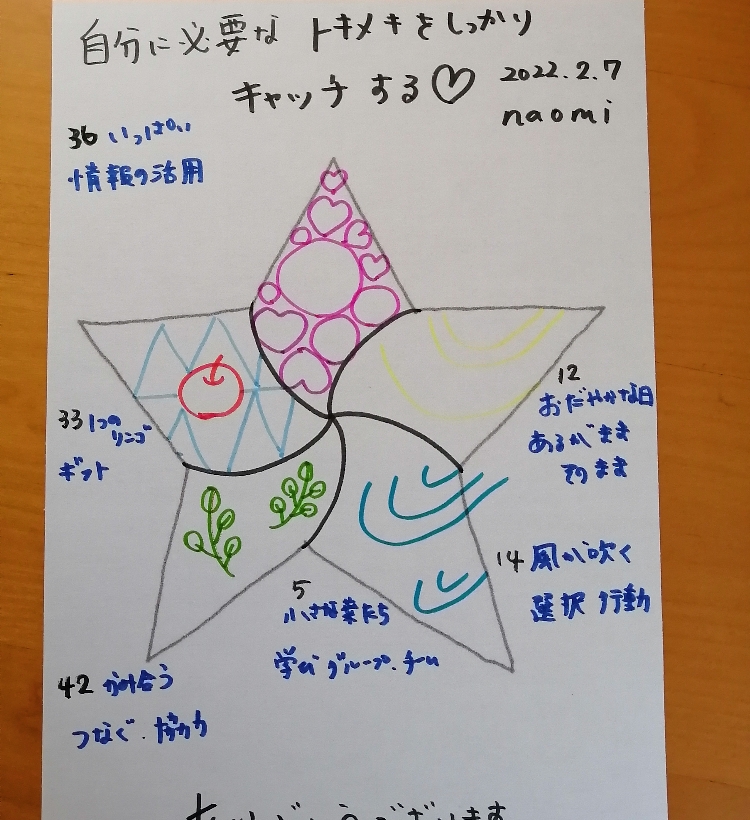 自分に必要な トキメキをしっかり
キャッチする♡ 2022.2.7
naomi
36 いっぱい
情報の活用
12
おだやかな日
あるがまま
そのまま
33 1つの
リンゴ
ギフト
14 風が吹く
選択 行動
5
小さな葉たち
学び グループ.チーム
42 分け合う
つなぐ.協力
ありがとうございます